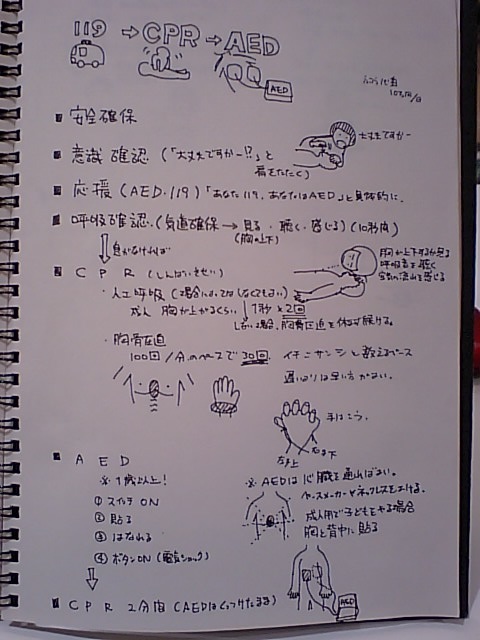 119 → CPR → AED
AED
安全確保
大丈夫ですかー
意識確認 (「大丈夫ですかー!?」と
肩をたたく)
応援 (AED・119) 「あなた119、あなたはAED」と具体的に.
呼吸確認. (気道確保 → 見る・聴く・感じる) (10秒内)
(胸の上下)
息がなければ
胸が上下するか見る
呼吸音を聴く
空気の流れを感じる
CPR (しんぱいそせい)
・人工呼吸 (場合によってはしなくてもよい)
成人 胸が上がるくらい 1秒×2回
しない場合、胸骨圧迫を休まず続ける。
・胸骨圧迫
100回/分のペースで 30回 イチニサンシと数えるペース
遅いよりは早い方がよい。
手はこう。
右手下
左手上
AED
※1歳以上!
① スイッチON
② 貼る
③ はなれる
④ ボタンON (電気ショック)
※AEDは心臓を通ればよい。
ペースメーカーやネックレスをよける。
成人用で子どもをやる場合
胸と背中に貼る
AED
CPR 2分間 (AEDはくっつけたまま)